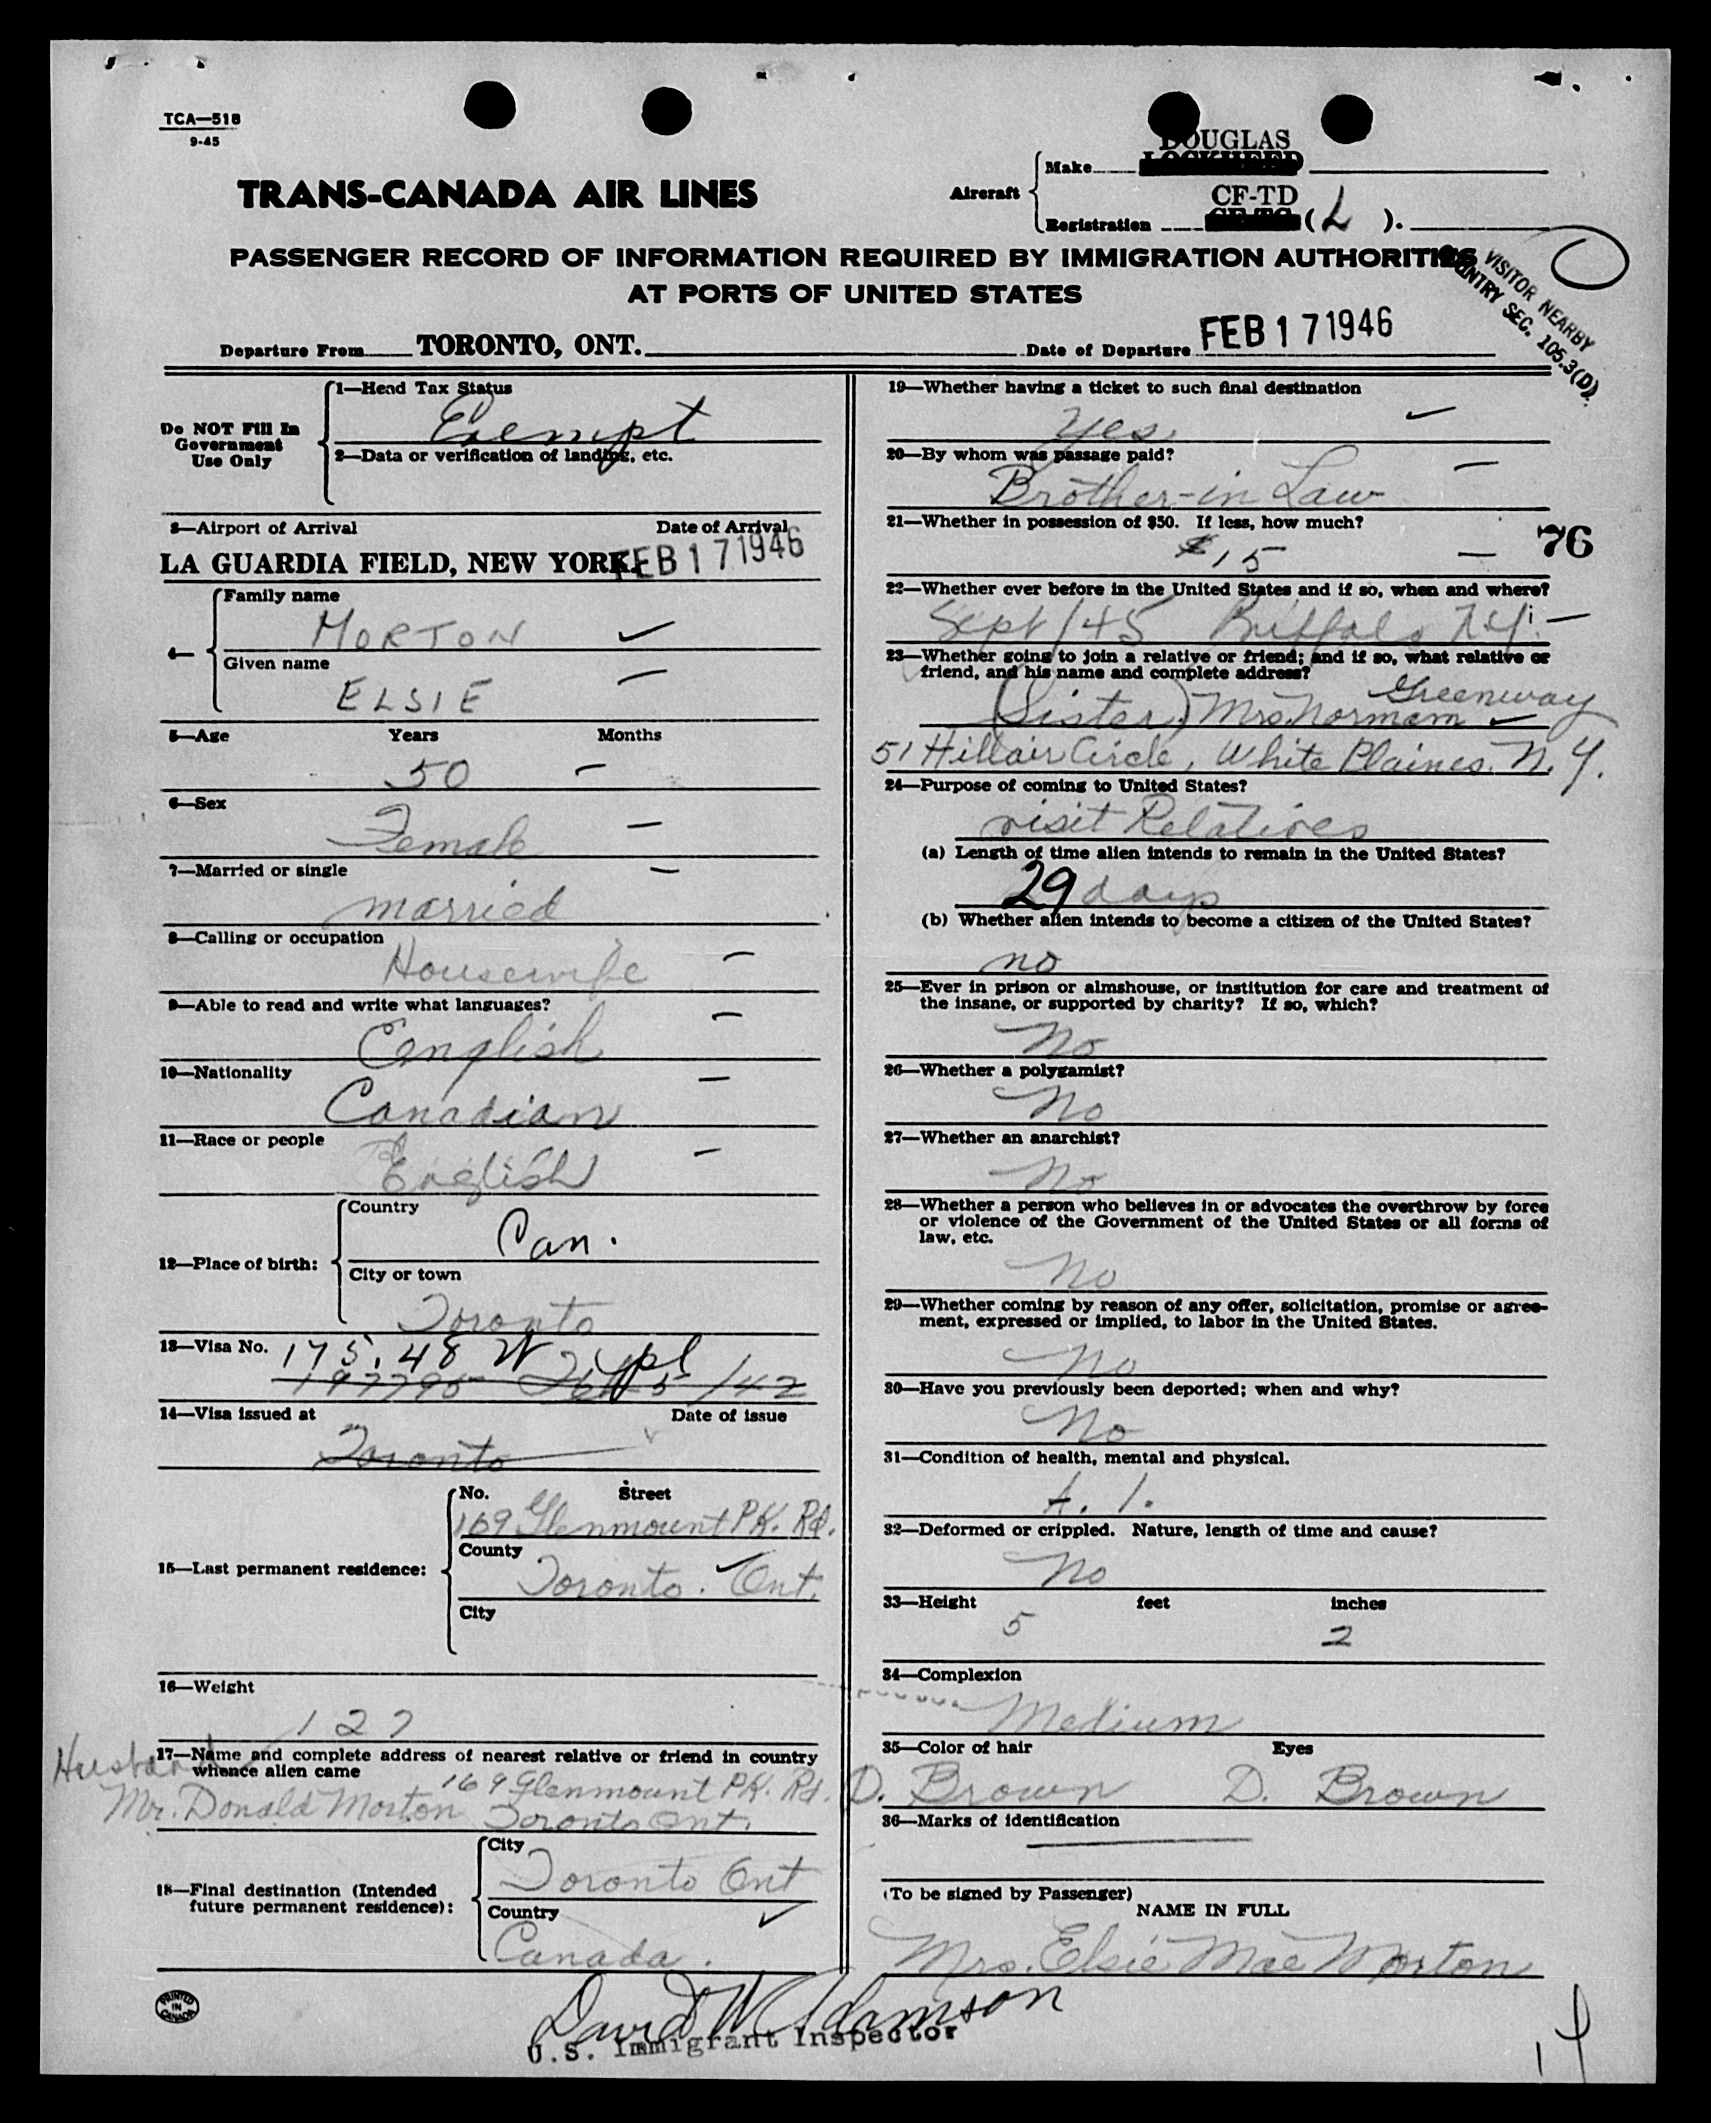 TCA—518
9-45
TRANS-CANADA AIR LINES
Aircraft
Make
DOUGLAS
LOCKHEED
Registration
CF-TD
(L).
PASSENGER RECORD OF INFORMATION REQUIRED BY IMMIGRATION AUTHORITIES
AT PORTS OF UNITED STATES
VISITOR NEARBY
COUNTRY SEC. 105.3(D)
Departure From TORONTO, ONT. Date of Departure FEB 17 1946
Do NOT Fill In
Government
Use Only
1—Head Tax Status
Exempt
2—Data or verification of landing, etc.
3—Airport of Arrival Date of Arrival
LA GUARDIA FIELD, NEW YORK. FEB 17 1946
4—
Family name
MORTON
Given name
ELSIE
5—Age Years Months
50
6—Sex
Female
7—Married or single
married
8—Calling or occupation
Housewife
9—Able to read and write what languages?
English
10—Nationality
Canadian
11—Race or people
English
12—Place of birth:
Country
Can.
City or town
Toronto
13—Visa No. 175.48
/42
14—Visa issued at Date of issue
Toronto
15—Last permanent residence:
No. Street
169 Glenmount PK. Rd.
County
Toronto. Ont.
City
16—Weight
127
17—Name and complete address of nearest relative or friend in country
whence alien came
Husband
169 Glenmount PK. Rd.
Mr. Donald Morton Toronto Ont.
18—Final destination (Intended
future permanent residence):
City
Toronto Ont
Country
Canada.
19—Whether having a ticket to such final destination
Yes
20—By whom was passage paid?
Brother-in Law
21—Whether in possession of $50. If less, how much?
$15
76
22—Whether ever before in the United States and if so, when and where?
Sept/45 Buffalo N.Y.
23—Whether going to join a relative or friend; and if so, what relative or
friend, and his name and complete address?
(Sister) Mrs. Normam Greenway
51 Hillair Circle, White Plaines. N.Y.
24—Purpose of coming to United States?
visit Relatives
(a) Length of time alien intends to remain in the United States?
29 days
(b) Whether alien intends to become a citizen of the United States?
no
25—Ever in prison or almshouse, or institution for care and treatment of
the insane, or supported by charity? If so, which?
No
26—Whether a polygamist?
No
27—Whether an anarchist?
No
28—Whether a person who believes in or advocates the overthrow by force
or violence of the Government of the United States or all forms of
law, etc.
No
29—Whether coming by reason of any offer, solicitation, promise or agree-
ment, expressed or implied, to labor in the United States.
No
30—Have you previously been deported; when and why?
No
31—Condition of health, mental and physical.
A. 1.
32—Deformed or crippled. Nature, length of time and cause?
No
33—Height feet inches
5 2
34—Complexion
Medium
35—Color of hair Eyes
D. Brown D. Brown
36—Marks of identification
(To be signed by Passenger)
NAME IN FULL
Mrs. Elsie Mae Morton
David W Adamson
U.S. Immigrant Inspector
PRINTED
IN
CANADA